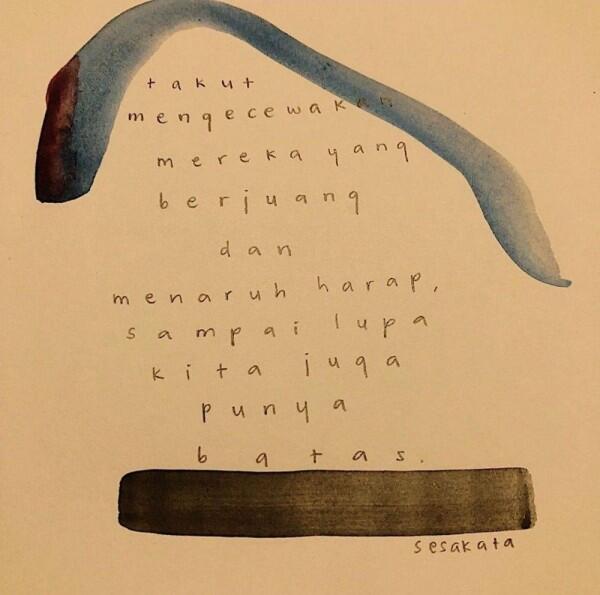 takut
mengecewakan
mereka yang
berjuang
dan
menaruh harap,
sampai lupa
kita juga
punya
batas.
sesakata